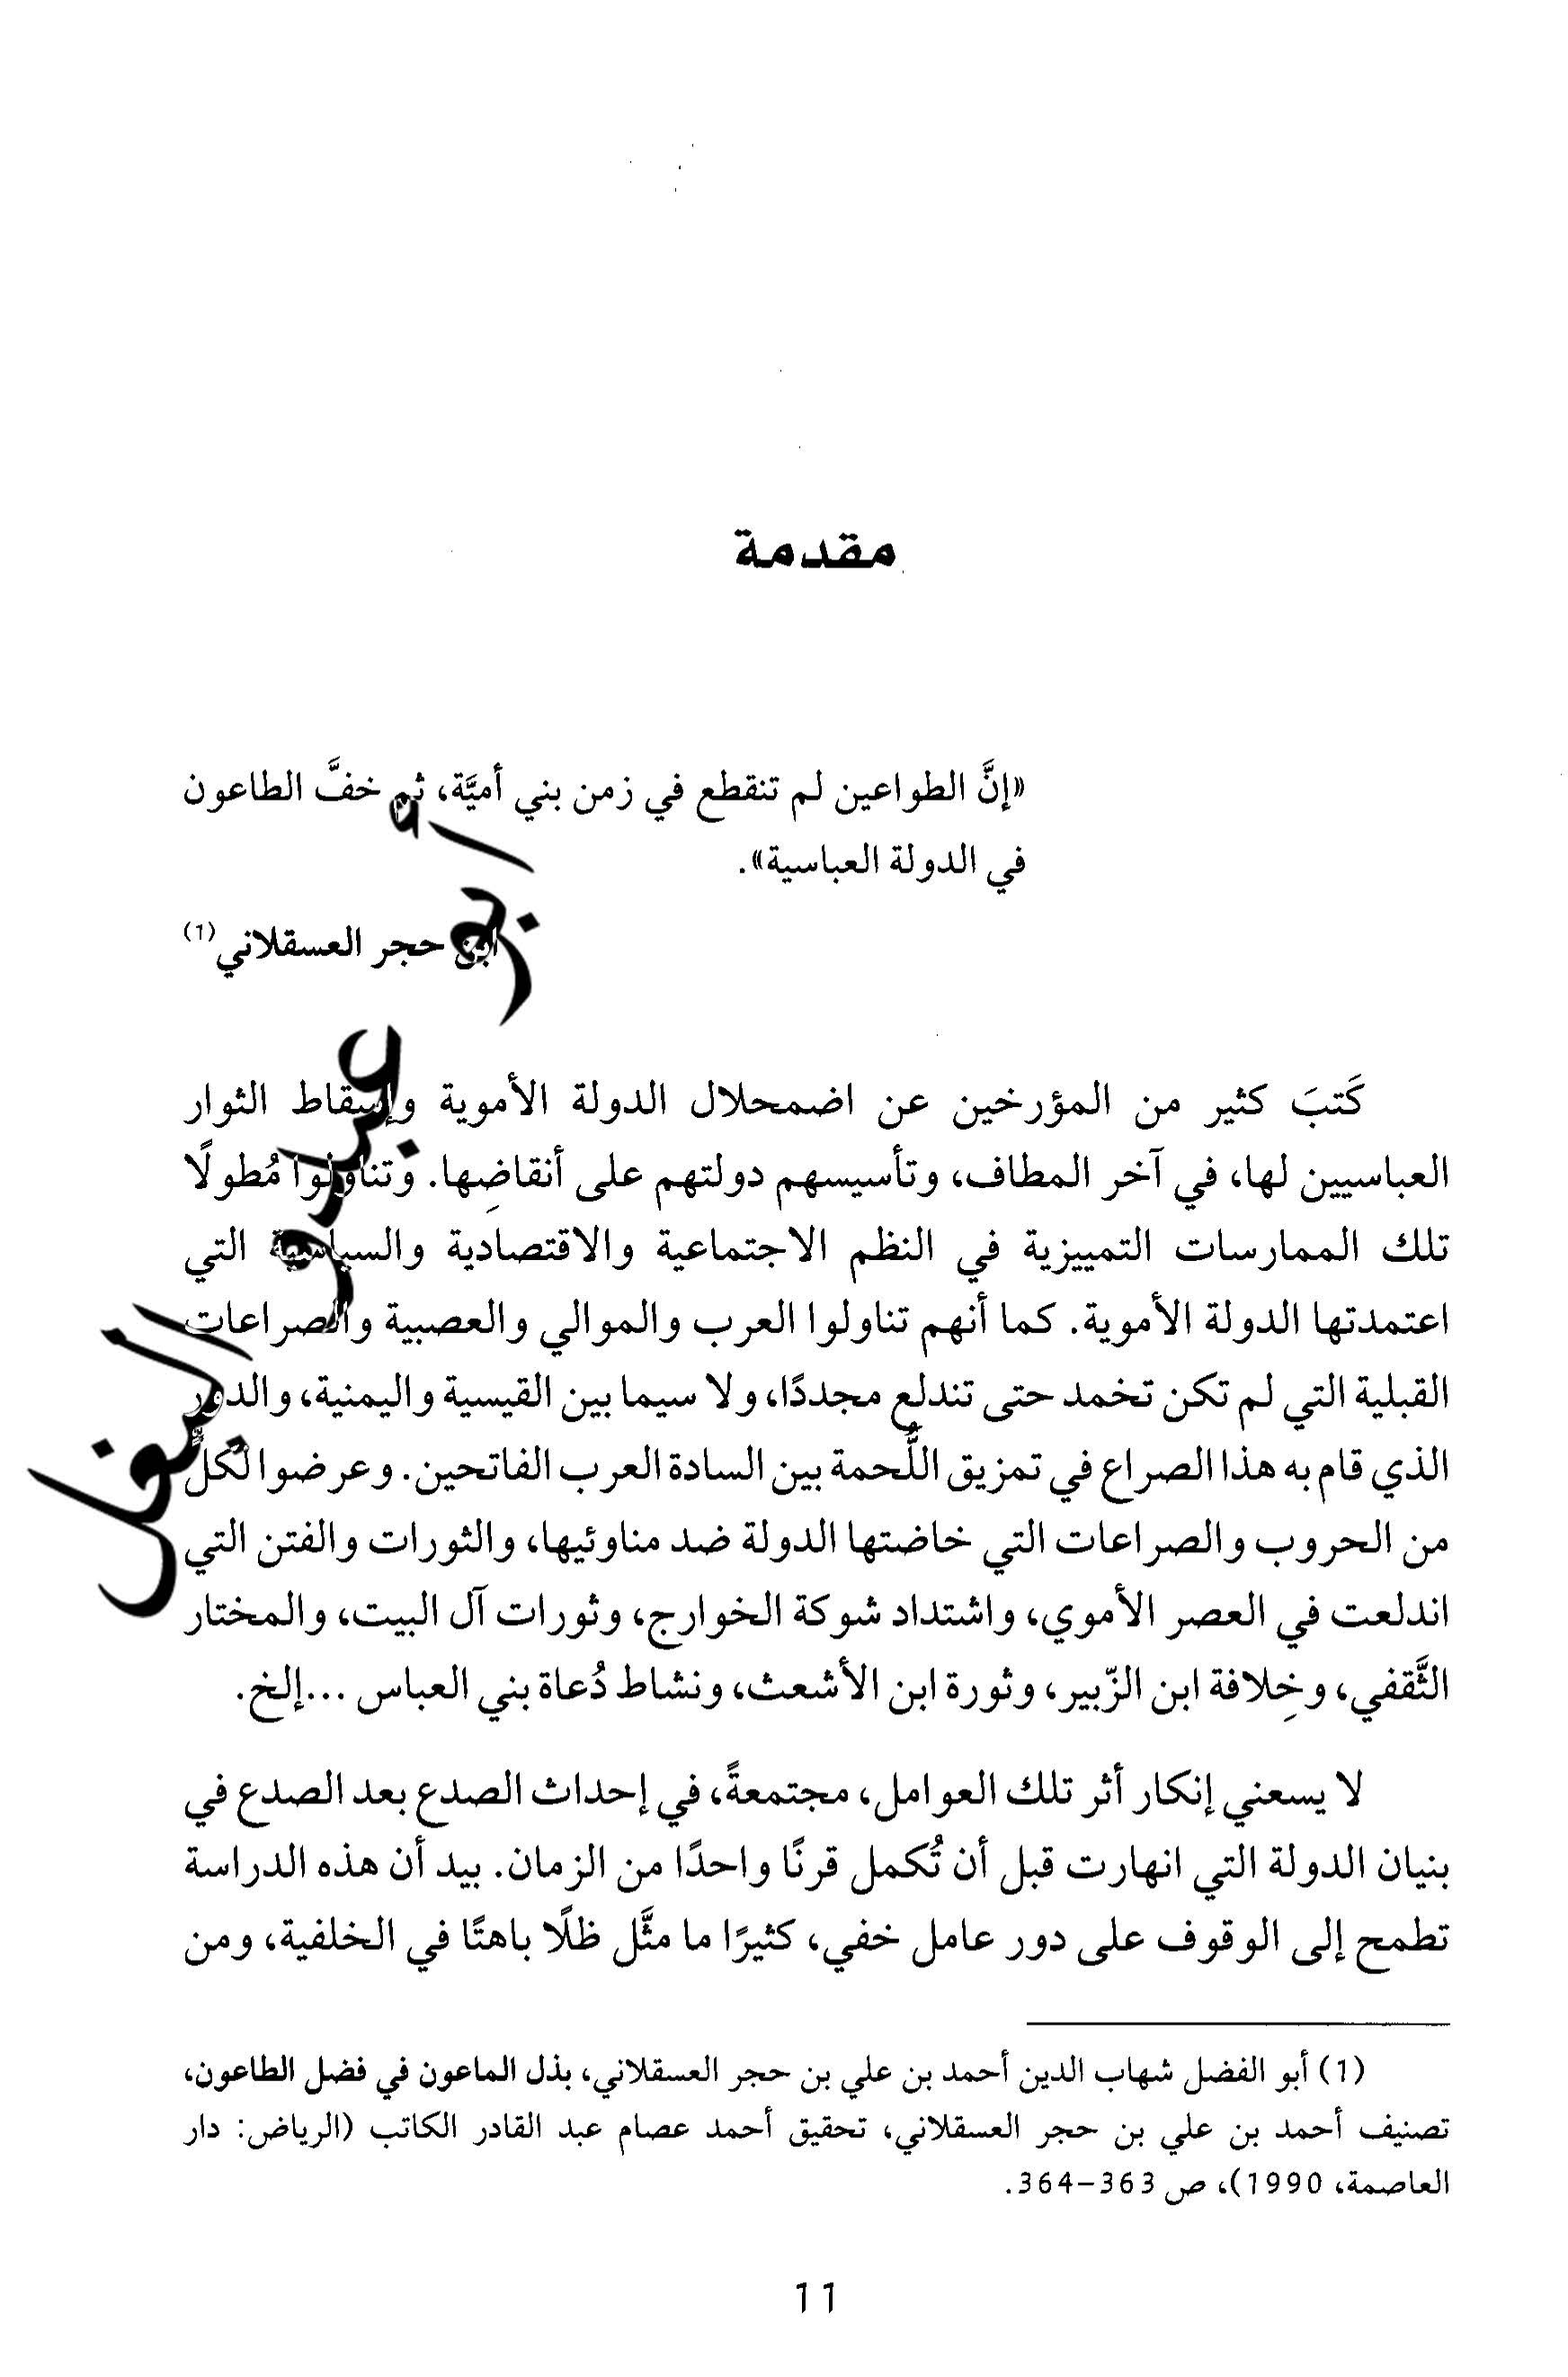 مقدمة
«إنَّ الطواعين لم تنقطع في زمن بني أميَّة، ثم خفَّ الطاعون
في الدولة العباسية».
ابن حجر العسقلاني(1)
كَتبَ كثير من المؤرخين عن اضمحلال الدولة الأموية وإسقاط الثوار
العباسيين لها، في آخر المطاف، وتأسيسهم دولتهم على أنقاضِها. وتناولوا مُطولًا
تلك الممارسات التمييزية في النظم الاجتماعية والاقتصادية والسياسية التي
اعتمدتها الدولة الأموية. كما أنهم تناولوا العرب والموالي والعصبية والصراعات
القبلية التي لم تكن تخمد حتى تندلع مجددًا، ولا سيما بين القيسية واليمنية، والدور
الذي قام به هذا الصراع في تمزيق اللُّحمة بين السادة العرب الفاتحين. وعرضوا لكلٍّ
من الحروب والصراعات التي خاضتها الدولة ضد مناوئيها، والثورات والفتن التي
اندلعت في العصر الأموي، واشتداد شوكة الخوارج، وثورات آل البيت، والمختار
الثَّقفي، وخِلافة ابن الزّبير، وثورة ابن الأشعث، ونشاط دُعاة بني العباس ...إلخ.
لا يسعني إنكار أثر تلك العوامل، مجتمعةً، في إحداث الصدع بعد الصدع في
بنيان الدولة التي انهارت قبل أن تُكمل قرنًا واحدًا من الزمان. بيد أن هذه الدراسة
تطمح إلى الوقوف على دور عامل خفي، كثيرًا ما مثَّل ظلًا باهتًا في الخلفية، ومن
(1) أبو الفضل شهاب الدين أحمد بن علي بن حجر العسقلاني، بذل الماعون في فضل الطاعون،
تصنيف أحمد بن علي بن حجر العسقلاني، تحقيق أحمد عصام عبد القادر الكاتب (الرياض: دار
العاصمة، 1990)، ص 363-364.
11
أبو عبدو البغل